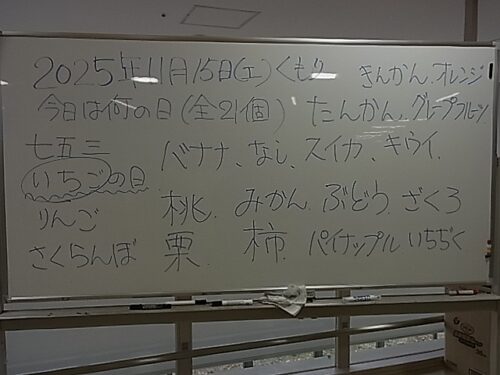 2025年11月15日(土)くもり きんかん、オレンジ
今日は何の日(全21個) たんかん、グレープフルーツ
七五三 バナナ、なし、スイカ、キウイ
いちごの日
りんご 桃、みかん、ぶどう、ざくろ
さくらんぼ 栗、柿、パイナップル いちぢく